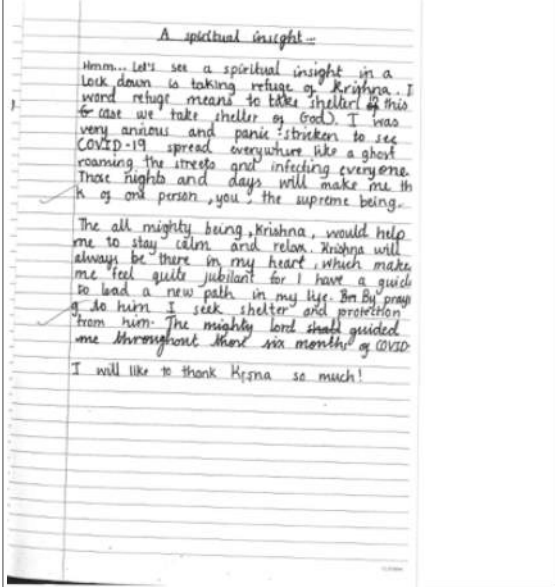 A spiritual insight -
Hmm... Let's see a spiritual insight in a
Lock down is taking refuge of Krishna. I
word refuge means to take shelter this
case we take shelter of God). I was
very anxious and panic stricken to see
COVID-19 spread everywhere like a ghost
roaming the streets and infecting everyone.
Those nights and days will make me th
k of one person, you, the supreme being.
The all mighty being, Krishna, would help
me to stay calm and relax. Krishna will
always be there in my heart, which make
me feel quite jubilant for I have a guid
to lead a new path in my life. By pray
g to him I seek shelter and protection
from him. The mighty lord shall guided
me throughout those six months of COVID
I will like to thank Krsna so much!